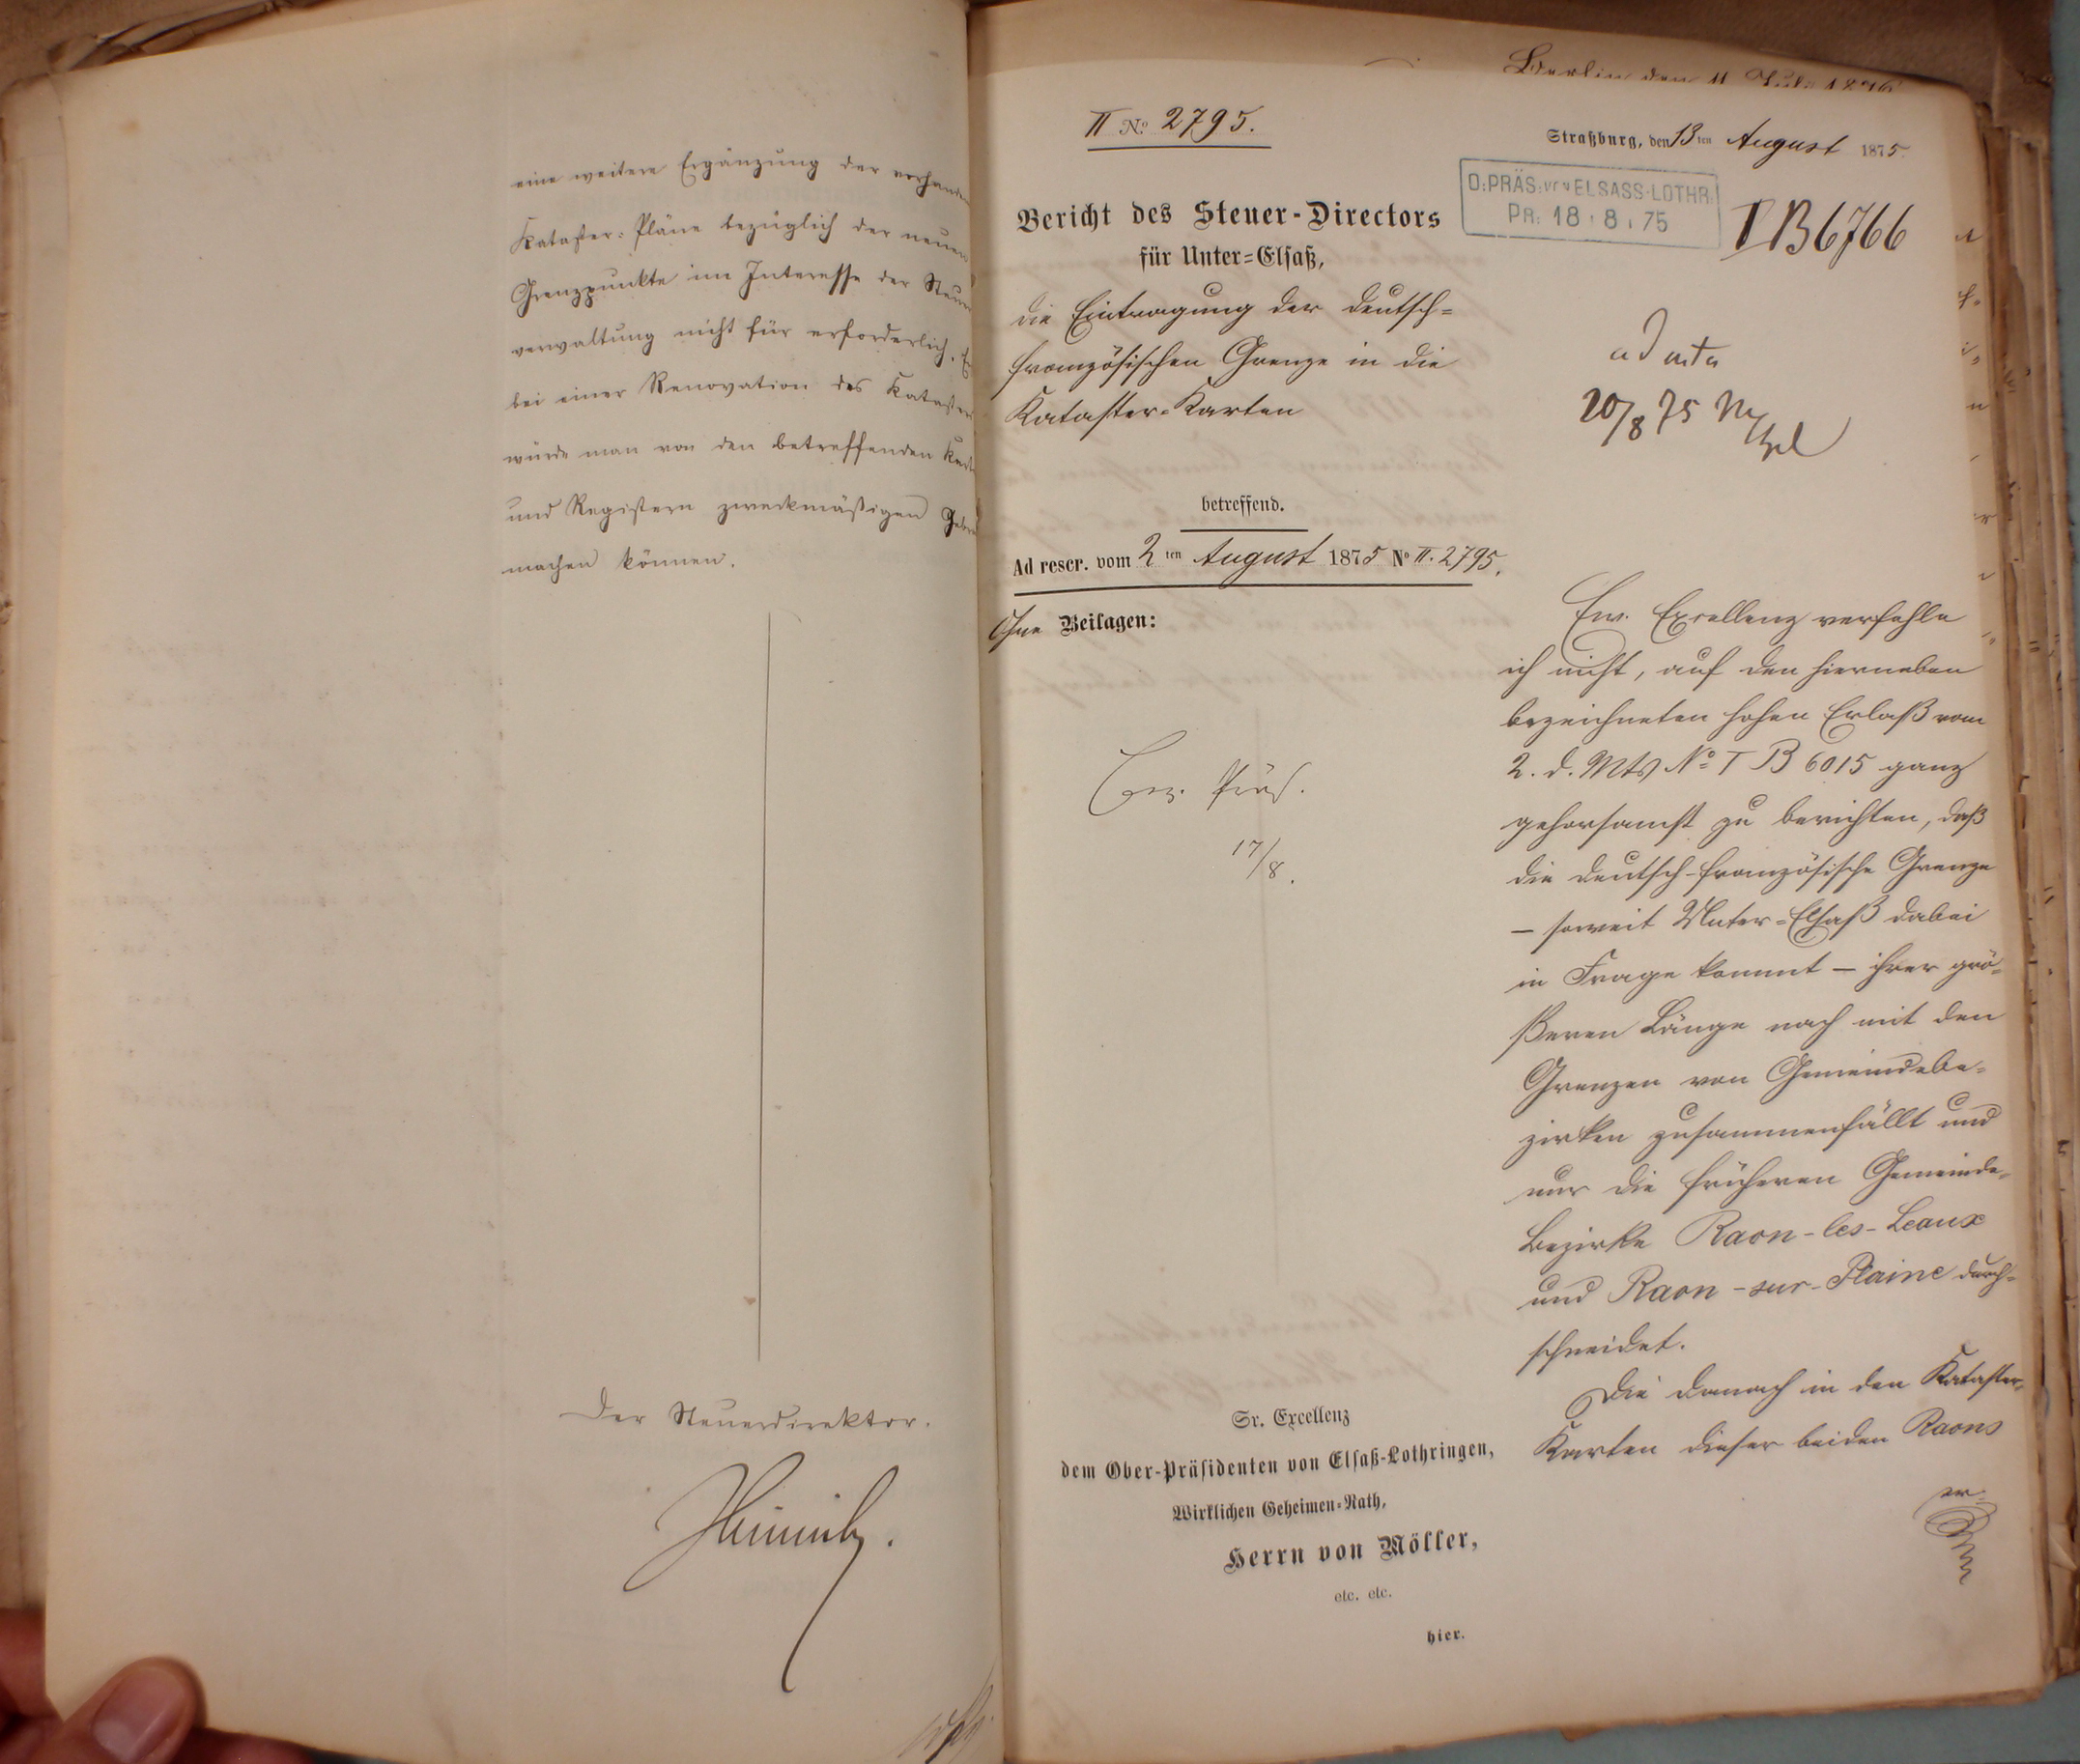 eine weitere Ergänzung der vorhande
Kataster-Pläne bezüglich der neuen
Grenzpunkte im Interesse der Steuer
verwaltung nicht für erforderlich.
bei einer Renovation des Kataster
würde man von den betreffenden
und Registern zweckmäßigen Gebra
machen können.
Der Steuerdirektor.
Berlin den 11 Juli 1876
II No. 2795.
Straßburg, den 13ten August 1875.
O: PRÄS: v. ELSASS-LOTHR:
PR: 18.8.75
I B 6766
Bericht des Steuer-Directors
für Unter-Elsaß,
die Eintragung der deutsch-
französischen Grenze in die
Kataster-Karten
betreffend.
Ad rescr. vom 2ten August 1875 No II. 2795.
Ohne Beilagen:
ad acta
20/8 75
17/8.
Ew. Excellenz verfehle
ich nicht, auf den hierneben
bezeichneten hohen Erlaß vom
2. d. Mts No I B 6015 ganz
gehorsamst zu berichten, daß
die deutsch-französische Grenze
– soweit Unter-Elsaß dabei
in Frage kommt – ihrer grö-
ßeren Länge nach mit den
Grenzen von Gemeindebe-
zirken zusammenfällt und
nur die früheren Gemeinde-
Bezirke Raon-les-Leaux
und Raon-sur-Plaine durch-
schneidet.
Die danach in den Kataster-
Karten dieser beiden Raons
er-
Sr. Excellenz
dem Ober-Präsidenten von Elsaß-Lothringen,
Wirklichen Geheimen-Rath,
Herrn von Möller,
etc. etc.
hier.